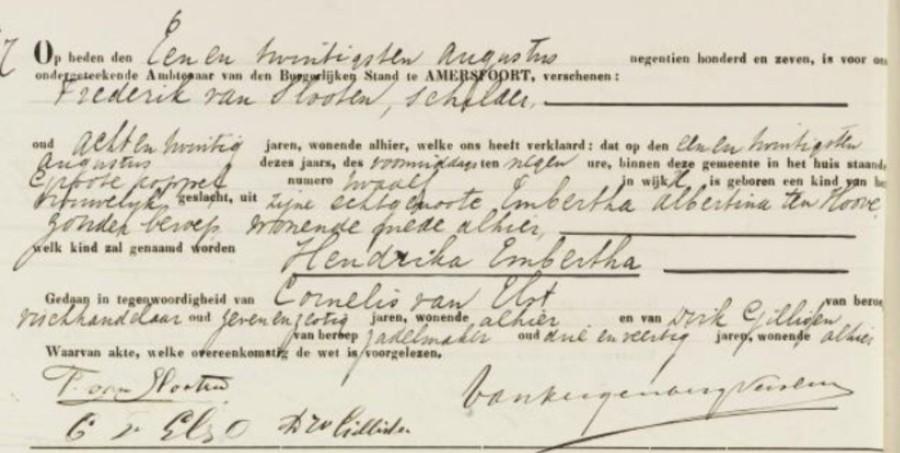 6
Op heden den Eenen twintigsten Augustus negentien honderd en zeven, is voor
ondergeteekende Ambtenaar van den Burgerlijken Stand te AMERSFOORT, verschenen:
Frederik van Slooten, schilder,
oud achten twintig jaren, wonende alhier, welke ons heeft verklaard: dat op den eenen twintigsten
Augustus dezes jaars, des voormiddags ten negen ure, binnen deze gemeente in het huis staand
Groote koppel numero twaalf in wijk is geboren een kind van
vrouwelijk geslacht, uit zijne echtgenoote Embertha Albertina ten Hoove
zonder beroep wonende mede alhier,
welk kind zal genaamd worden
Hendrika Embertha
Gedaan in tegenwoordigheid van Cornelis van Elst van beroe
vischhandelaar oud zevenenzestig jaren, wonende alhier en van Dirk Gillissen
van beroep zadelmaker oud drie en veertig jaren, wonende alhier
Waarvan akte, welke overeenkomstig de wet is voorgelezen.
F. van Slooten
C v Elst